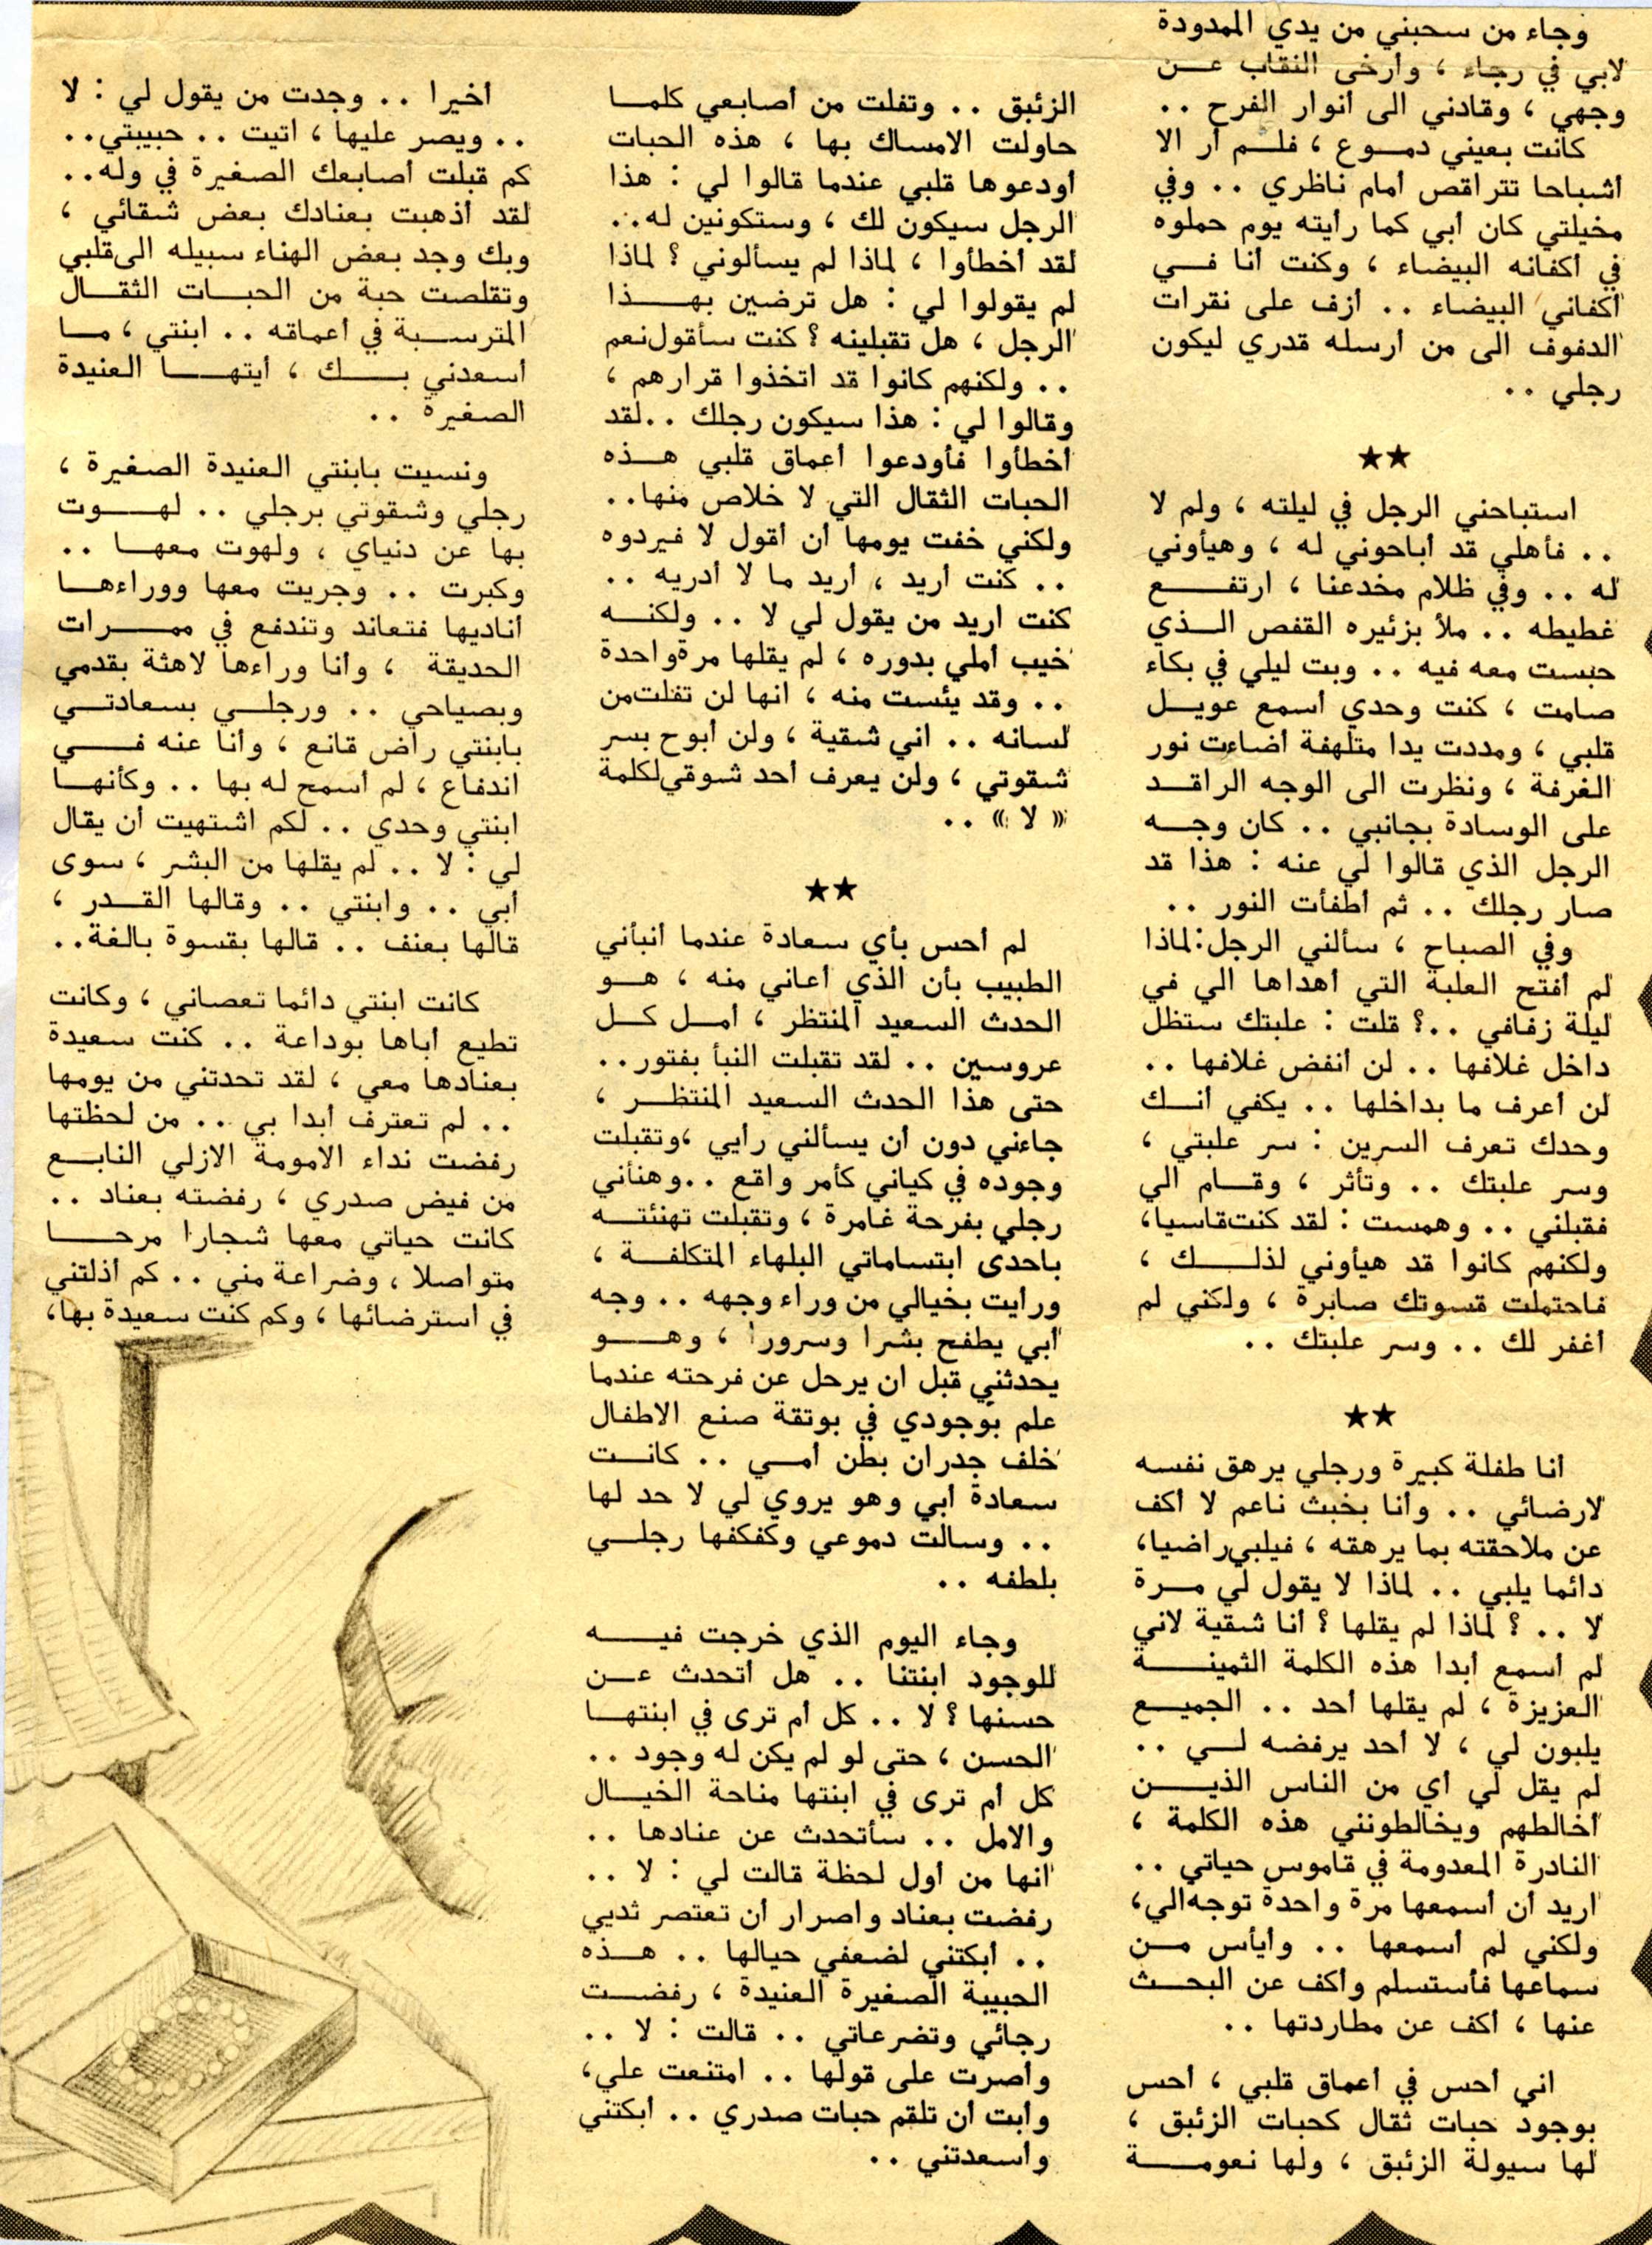 وجاء من سحبني من يدي الممدودة
لابي في رجاء ، وأرخى النقاب عن
وجهي ، وقادني الى أنوار الفرح ..
كانت بعيني دموع ، فلم أر الا
أشباحا تتراقص أمام ناظري .. وفي
مخيلتي كان أبي كما رأيته يوم حملوه
في أكفانه البيضاء ، وكنت أنا في
أكفاني البيضاء .. أزف على نقرات
الدفوف الى من أرسله قدري ليكون
رجلي ..
★★
استباحني الرجل في ليلته ، ولم لا
.. فأهلي قد أباحوني له ، وهيأوني
له .. وفي ظلام مخدعنا ، ارتفع
غطيطه .. ملأ بزئيره القفص الذي
حبست معه فيه .. وبت ليلي في بكاء
صامت ، كنت وحدي أسمع عويل
قلبي ، ومددت يدا متلهفة أضاءت نور
الغرفة ، ونظرت الى الوجه الراقد
على الوسادة بجانبي .. كان وجه
الرجل الذي قالوا لي عنه : هذا قد
صار رجلك .. ثم أطفأت النور ..
وفي الصباح ، سألني الرجل : لماذا
لم أفتح العلبة التي أهداها الي في
ليلة زفافي ..؟ قلت : علبتك ستظل
داخل غلافها .. لن أنفض غلافها ..
لن أعرف ما بداخلها .. يكفي أنك
وحدك تعرف السرين : سر علبتي ،
وسر علبتك .. وتأثر ، وقام الي
فقبلني .. وهمست : لقد كنت قاسيا ،
ولكنهم كانوا قد هيأوني لذلك ،
فاحتملت قسوتك صابرة ، ولكني لم
أغفر لك .. وسر علبتك ..
★★
أنا طفلة كبيرة ورجلي يرهق نفسه
لارضائي .. وأنا بخبث ناعم لا أكف
عن ملاحقته بما يرهقه ، فيلبي راضيا ،
دائما يلبي .. لماذا لا يقول لي مرة
لا .. ؟ لماذا لم يقلها ؟ أنا شقية لاني
لم أسمع أبدا هذه الكلمة الثمينة
العزيزة ، لم يقلها أحد .. الجميع
يلبون لي ، لا أحد يرفضه لي ..
لم يقل لي أي من الناس الذين
أخالطهم ويخالطونني هذه الكلمة ،
النادرة المعدومة في قاموس حياتي ..
اريد أن أسمعها مرة واحدة توجه الي ،
ولكني لم أسمعها .. وأيأس من
سماعها فأستسلم وأكف عن البحث
عنها ، أكف عن مطاردتها ..
اني أحس في أعماق قلبي ، أحس
بوجود حبات ثقال كحبات الزئبق ،
لها سيولة الزئبق ، ولها نعومة
الزئبق .. وتفلت من أصابعي كلما
حاولت الامساك بها ، هذه الحبات
أودعوها قلبي عندما قالوا لي : هذا
الرجل سيكون لك ، وستكونين له ..
لقد أخطأوا ، لماذا لم يسألوني ؟ لماذا
لم يقولوا لي : هل ترضين بهذا
الرجل ، هل تقبلينه ؟ كنت سأقول نعم
.. ولكنهم كانوا قد اتخذوا قرارهم ،
وقالوا لي : هذا سيكون رجلك .. لقد
أخطأوا فأودعوا أعماق قلبي هذه
الحبات الثقال التي لا خلاص منها ..
ولكني خفت يومها أن أقول لا فيردوه
.. كنت أريد ، أريد ما لا أدريه ..
كنت اريد من يقول لي لا .. ولكنه
خيب أملي بدوره ، لم يقلها مرة واحدة
.. وقد يئست منه ، انها لن تفلت من
لسانه .. اني شقية ، ولن أبوح بسر
شقوتي ، ولن يعرف أحد شوقي لكلمة
« لا » ..
★★
لم أحس بأي سعادة عندما أنبأني
الطبيب بأن الذي أعاني منه ، هو
الحدث السعيد المنتظر ، أمل كل
عروسين .. لقد تقبلت النبأ بفتور ..
حتى هذا الحدث السعيد المنتظر ،
جاءني دون أن يسألني رأيي ، وتقبلت
وجوده في كياني كأمر واقع .. وهنأني
رجلي بفرحة غامرة ، وتقبلت تهنئته
باحدى ابتساماتي البلهاء المتكلفة ،
ورايت بخيالي من وراء وجهه .. وجه
أبي يطفح بشرا وسرورا ، وهو
يحدثني قبل ان يرحل عن فرحته عندما
علم بوجودي في بوتقة صنع الاطفال
خلف جدران بطن أمي .. كانت
سعادة أبي وهو يروي لي لا حد لها
.. وسالت دموعي وكفكفها رجلي
بلطفه ..
وجاء اليوم الذي خرجت فيه
للوجود ابنتنا .. هل أتحدث عن
حسنها ؟ لا .. كل أم ترى في ابنتها
الحسن ، حتى لو لم يكن له وجود ..
كل أم ترى في ابنتها مناحة الخيال
والامل .. سأتحدث عن عنادها ..
انها من أول لحظة قالت لي : لا ..
رفضت بعناد واصرار أن تعتصر ثديي
.. أبكتني لضعفي حيالها .. هذه
الحبيبة الصغيرة العنيدة ، رفضت
رجائي وتضرعاتي .. قالت : لا ..
وأصرت على قولها .. امتنعت علي ،
وأبت أن تلقم حبات صدري .. أبكتني
وأسعدتني ..
أخيرا .. وجدت من يقول لي : لا
.. ويصر عليها ، أتيت .. حبيبتي ..
كم قبلت أصابعك الصغيرة في وله ..
لقد أذهبت بعنادك بعض شقائي ،
وبك وجد بعض الهناء سبيله الى قلبي
وتقلصت حبة من الحبات الثقال
المترسبة في أعماقه .. ابنتي ، ما
أسعدني بك ، أيتها العنيدة
الصغيرة ..
ونسيت بابنتي العنيدة الصغيرة ،
رجلي وشقوتي برجلي .. لهوت
بها عن دنياي ، ولهوت معها ..
وكبرت .. وجريت معها ووراءها
أناديها فتعاند وتندفع في ممرات
الحديقة ، وأنا وراءها لاهثة بقدمي
وبصياحي .. ورجلي بسعادتي
بابنتي راض قانع ، وأنا عنه في
اندفاع ، لم أسمح له بها .. وكأنها
ابنتي وحدي .. لكم اشتهيت أن يقال
لي : لا .. لم يقلها من البشر ، سوى
أبي .. وابنتي .. وقالها القدر ،
قالها بعنف .. قالها بقسوة بالغة ..
كانت ابنتي دائما تعصاني ، وكانت
تطيع أباها بوداعة .. كنت سعيدة
بعنادها معي ، لقد تحدتني من يومها
.. لم تعترف أبدا بي .. من لحظتها
رفضت نداء الامومة الازلي النابع
من فيض صدري ، رفضته بعناد ..
كانت حياتي معها شجارا مرحا
متواصلا ، وضراعة مني .. كم أذلتني
في استرضائها ، وكم كنت سعيدة بها ،